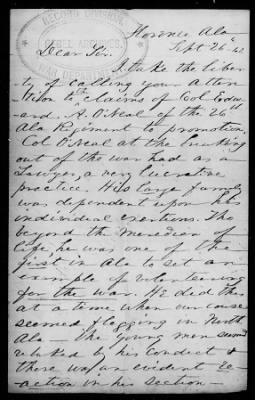 RECORD DIVISION
REBEL ARCHIVES
WAR DEPARTMENT
Florence Ala
Sept 26 - 62
Dear Sir.
I take the liber
ty of Calling your atten
tion to the claims of Col Edw
ard. A. O'Neal of the 26
Ala Regiment to promotion.
Col O'Neal at the breaking
out of the war had as a
Lawyer, a very lucrative
practice. His large family
was dependent upon his
individual exertions. Tho
beyond the meredian of
life, he was one of the
first in Ala to set an
example of volunteering
for the war. He did this
at a time when our cause
seemed flagging in North
Ala - The young men seemed
rebuked by his Conduct &
there was an evident re-
action in his section -